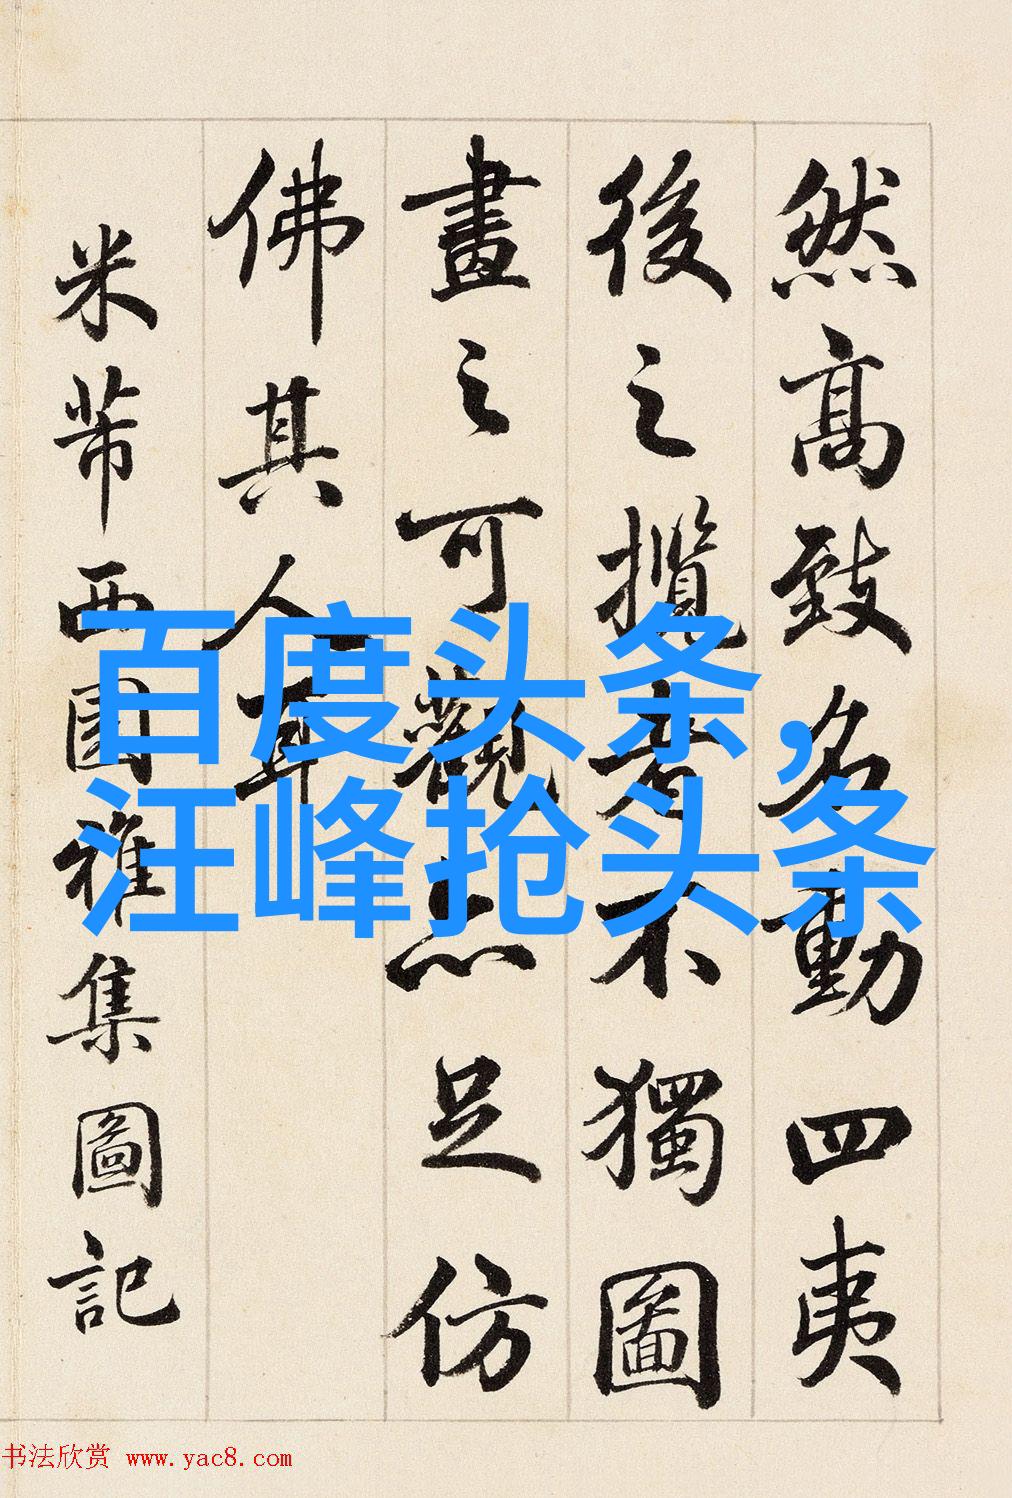 然高致名動四夷
後之揽者不獨圖
畫之可觀亦足仿
佛其人耳
米芾西園雅集圖記
百度头条，
汪峰抢头条
书法欣赏 www.yac8.com